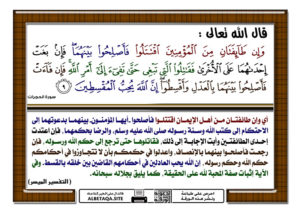 قال الله تعالى :
وَإِن طَائِفَتَانِ مِنَ الْمُؤْمِنِينَ اقْتَتَلُوا فَأَصْلِحُوا بَيْنَهُمَا فَإِن بَغَتْ
إِحْدَاهُمَا عَلَى الْأُخْرَىٰ فَقَاتِلُوا الَّتِي تَبْغِي حَتَّىٰ تَفِيءَ إِلَىٰ أَمْرِ اللَّهِ فَإِن فَاءَتْ
فَأَصْلِحُوا بَيْنَهُمَا بِالْعَدْلِ وَأَقْسِطُوا إِنَّ اللَّهَ يُحِبُّ الْمُقْسِطِينَ ٩
سورة الحجرات
أي وإن طائفتان من أهل الإيمان اقتتلوا فأصلحوا -أيها المؤمنون- بينهما بدعوتهما إلى
الاحتكام إلى كتاب الله وسنة رسوله صلى الله عليه وسلم، والرضا بحكمهما، فإن اعتدت
إحدى الطائفتين وأبت الإجابة إلى ذلك، فقاتلوها حتى ترجع إلى حكم الله ورسوله، فإن
رجعت فأصلحوا بينهما بالإنصاف، واعدلوا في حكمكم بأن لا تتجاوزوا في أحكامكم
حكم الله وحكم رسوله، إن الله يحب العادلين في أحكامهم القاضين بين خلقه بالقسط. وفي
الآية إثبات صفة المحبة لله على الحقيقة، كما يليق بجلاله سبحانه.
( التفسير الميسر )
ALBETAQA.SITE
احرص على طباعة
ونشر هذه الورقة